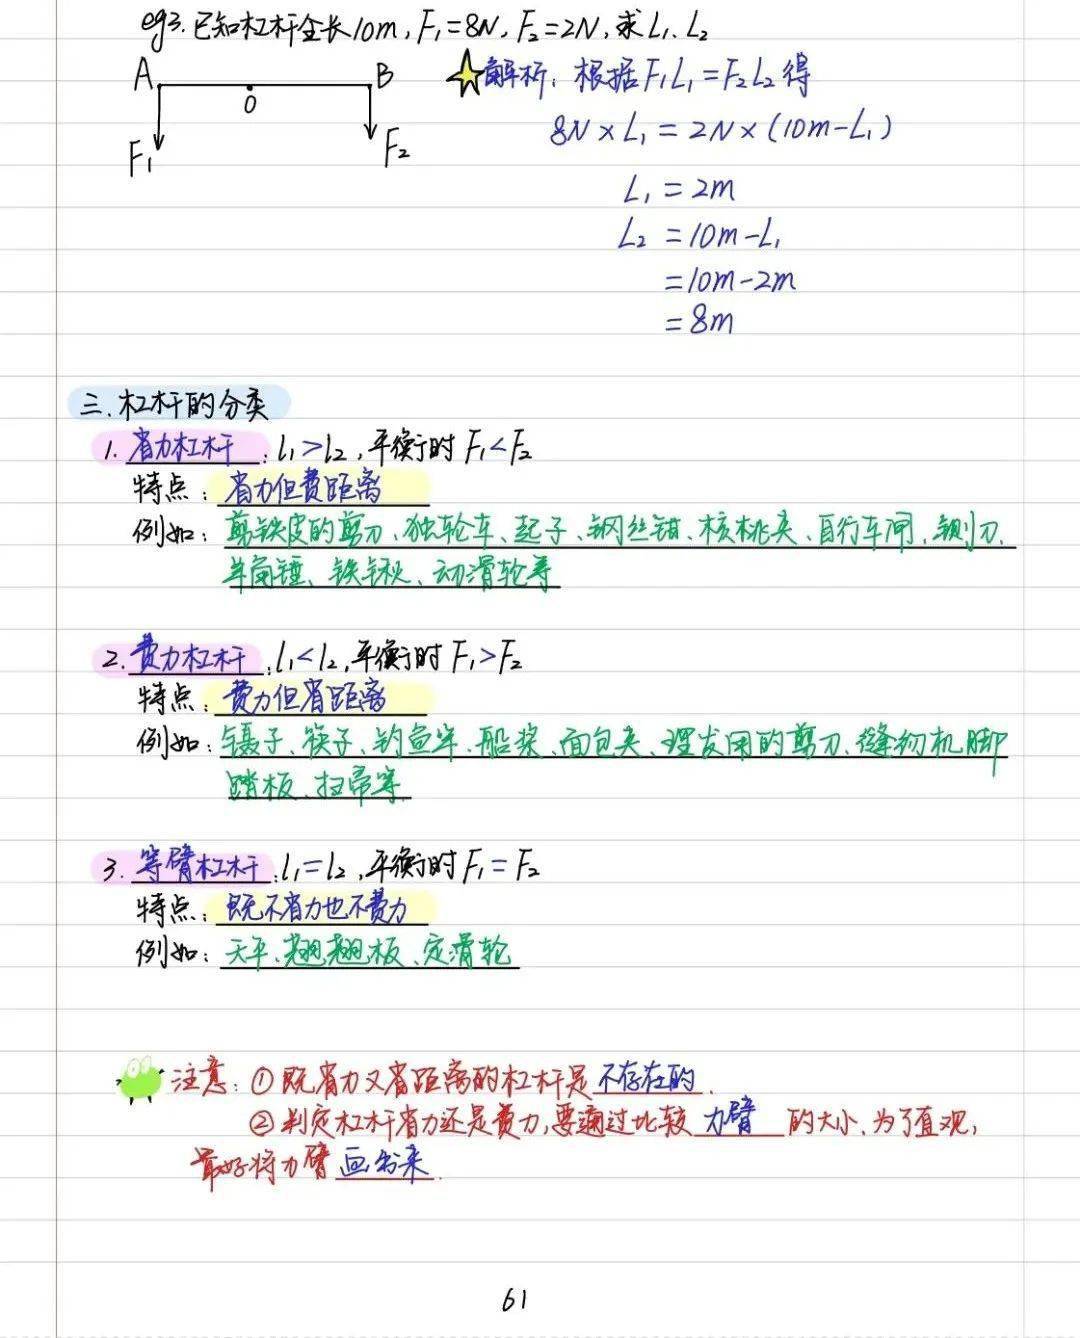 eg3. 已知杠杆全长10m, F₁=8N, F₂=2N, 求L₁、L₂
A B
O
F₁ F₂
解析: 根据F₁L₁=F₂L₂得
8N×L₁=2N×(10m-L₁)
L₁=2m
L₂=10m-L₁
=10m-2m
=8m
三.杠杆的分类
1. 省力杠杆:l₁>l₂,平衡时F₁<F₂
特点:省力但费距离
例如:剪铁皮的剪刀、独轮车、起子、钢丝钳、核桃夹、自行车闸、铡刀、
羊角锤、铁锹、动滑轮等
2. 费力杠杆:l₁<l₂,平衡时F₁>F₂
特点:费力但省距离
例如:镊子、筷子、钓鱼竿、船桨、面包夹、理发用的剪刀、缝纫机脚
踏板、扫帚等
3. 等臂杠杆:l₁=l₂,平衡时F₁=F₂
特点:既不省力也不费力
例如:天平、翘翘板、定滑轮
注意:①既省力又省距离的杠杆是不存在的.
②判定杠杆省力还是费力,要通过比较 力臂 的大小.为了直观,
最好将力臂画出来.
61